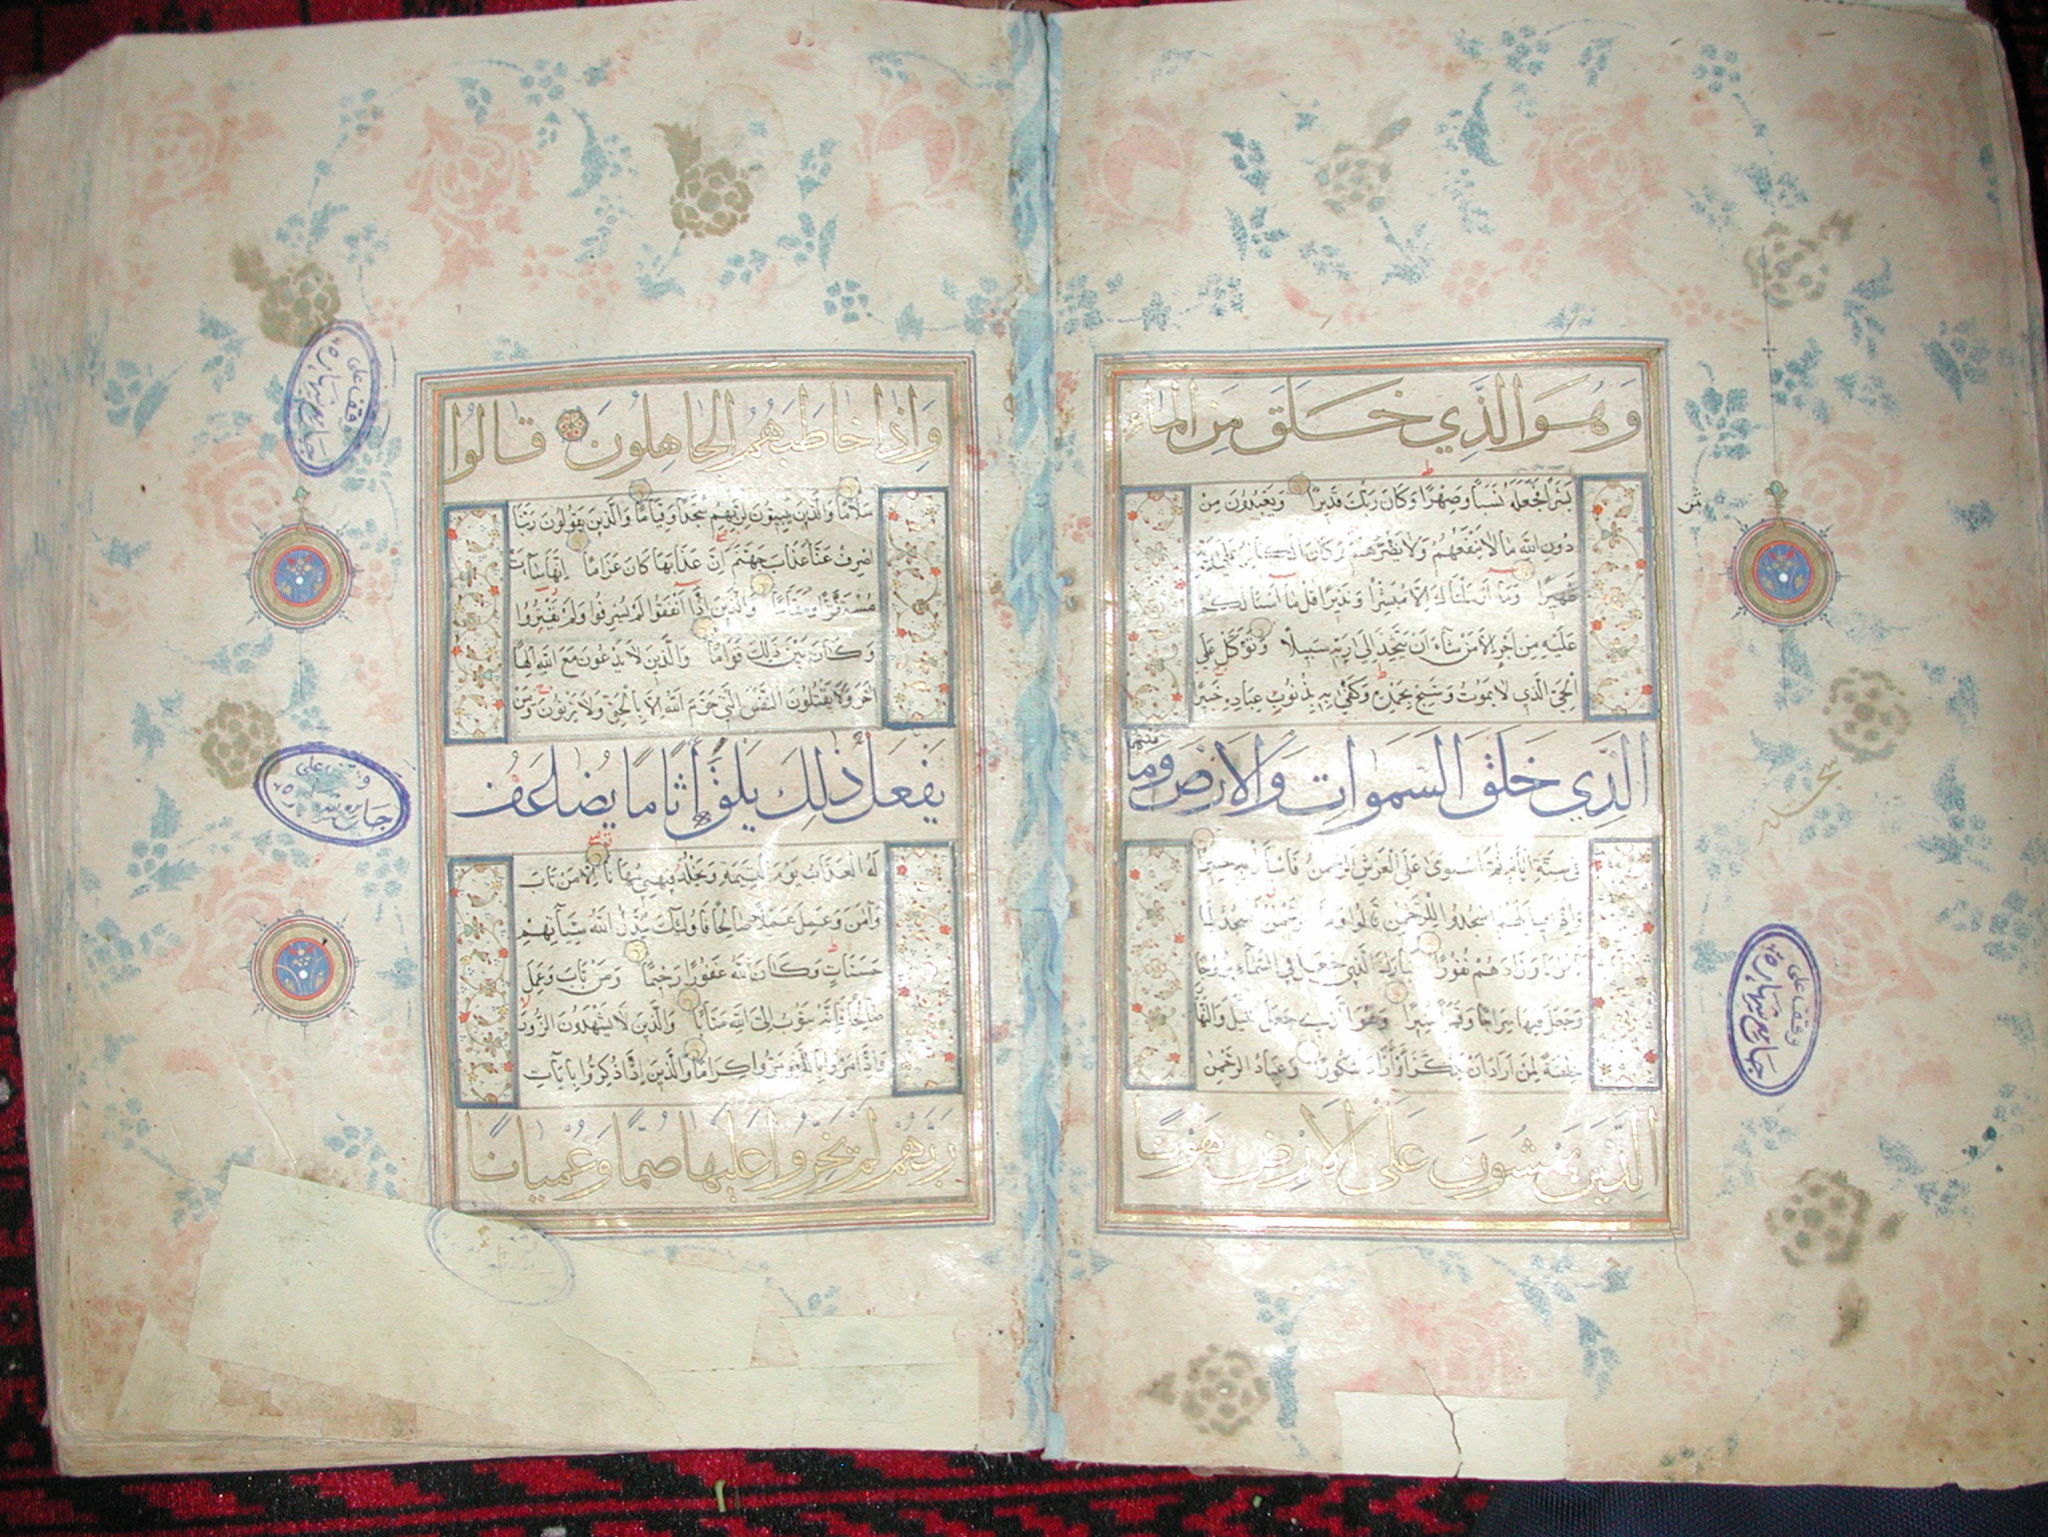 وَهُوَ الَّذِي خَلَقَ مِنَ الْمَاءِ
بَشَرًا فَجَعَلَهُ نَسَبًا وَصِهْرًا وَكَانَ رَبُّكَ قَدِيرًا وَيَعْبُدُونَ مِنْ
دُونِ اللَّهِ مَا لَا يَنْفَعُهُمْ وَلَا يَضُرُّهُمْ وَكَانَ الْكَافِرُ عَلَى رَبِّهِ
ظَهِيرًا وَمَا أَرْسَلْنَاكَ إِلَّا مُبَشِّرًا وَنَذِيرًا قُلْ مَا أَسْأَلُكُمْ
عَلَيْهِ مِنْ أَجْرٍ إِلَّا مَنْ شَاءَ أَنْ يَتَّخِذَ إِلَى رَبِّهِ سَبِيلًا وَتَوَكَّلْ عَلَى
الْحَيِّ الَّذِي لَا يَمُوتُ وَسَبِّحْ بِحَمْدِهِ وَكَفَى بِهِ بِذُنُوبِ عِبَادِهِ خَبِيرًا
الَّذِي خَلَقَ السَّمَوَاتِ وَالْأَرْضَ وَمَا بَيْنَهُمَا
فِي سِتَّةِ أَيَّامٍ ثُمَّ اسْتَوَى عَلَى الْعَرْشِ الرَّحْمَنُ فَاسْأَلْ بِهِ خَبِيرًا
وَإِذَا قِيلَ لَهُمُ اسْجُدُوا لِلرَّحْمَنِ قَالُوا وَمَا الرَّحْمَنُ أَنَسْجُدُ لِمَا
تَأْمُرُنَا وَزَادَهُمْ نُفُورًا تَبَارَكَ الَّذِي جَعَلَ فِي السَّمَاءِ بُرُوجًا
وَجَعَلَ فِيهَا سِرَاجًا وَقَمَرًا مُنِيرًا وَهُوَ الَّذِي جَعَلَ اللَّيْلَ وَالنَّهَارَ
خِلْفَةً لِمَنْ أَرَادَ أَنْ يَذَّكَّرَ أَوْ أَرَادَ شُكُورًا وَعِبَادُ الرَّحْمَنِ
الَّذِينَ يَمْشُونَ عَلَى الْأَرْضِ هَوْنًا
سجده
وَإِذَا خَاطَبَهُمُ الْجَاهِلُونَ قَالُوا
سَلَامًا وَالَّذِينَ يَبِيتُونَ لِرَبِّهِمْ سُجَّدًا وَقِيَامًا وَالَّذِينَ يَقُولُونَ رَبَّنَا
اصْرِفْ عَنَّا عَذَابَ جَهَنَّمَ إِنَّ عَذَابَهَا كَانَ غَرَامًا إِنَّهَا سَاءَتْ
مُسْتَقَرًّا وَمُقَامًا وَالَّذِينَ إِذَا أَنْفَقُوا لَمْ يُسْرِفُوا وَلَمْ يَقْتُرُوا
وَكَانَ بَيْنَ ذَلِكَ قَوَامًا وَالَّذِينَ لَا يَدْعُونَ مَعَ اللَّهِ إِلَهًا
آخَرَ وَلَا يَقْتُلُونَ النَّفْسَ الَّتِي حَرَّمَ اللَّهُ إِلَّا بِالْحَقِّ وَلَا يَزْنُونَ وَمَنْ
يَفْعَلْ ذَلِكَ يَلْقَ أَثَامًا يُضَاعَفْ
لَهُ الْعَذَابُ يَوْمَ الْقِيَمَةِ وَيَخْلُدْ فِيهِ مُهَانًا إِلَّا مَنْ تَابَ
وَآمَنَ وَعَمِلَ عَمَلًا صَالِحًا فَأُولَئِكَ يُبَدِّلُ اللَّهُ سَيِّئَاتِهِمْ
حَسَنَاتٍ وَكَانَ اللَّهُ غَفُورًا رَحِيمًا وَمَنْ تَابَ وَعَمِلَ
صَالِحًا فَإِنَّهُ يَتُوبُ إِلَى اللَّهِ مَتَابًا وَالَّذِينَ لَا يَشْهَدُونَ الزُّورَ
وَإِذَا مَرُّوا بِاللَّغْوِ مَرُّوا كِرَامًا وَالَّذِينَ إِذَا ذُكِّرُوا بِآيَاتِ
رَبِّهِمْ لَمْ يَخِرُّوا عَلَيْهَا صُمًّا وَعُمْيَانًا